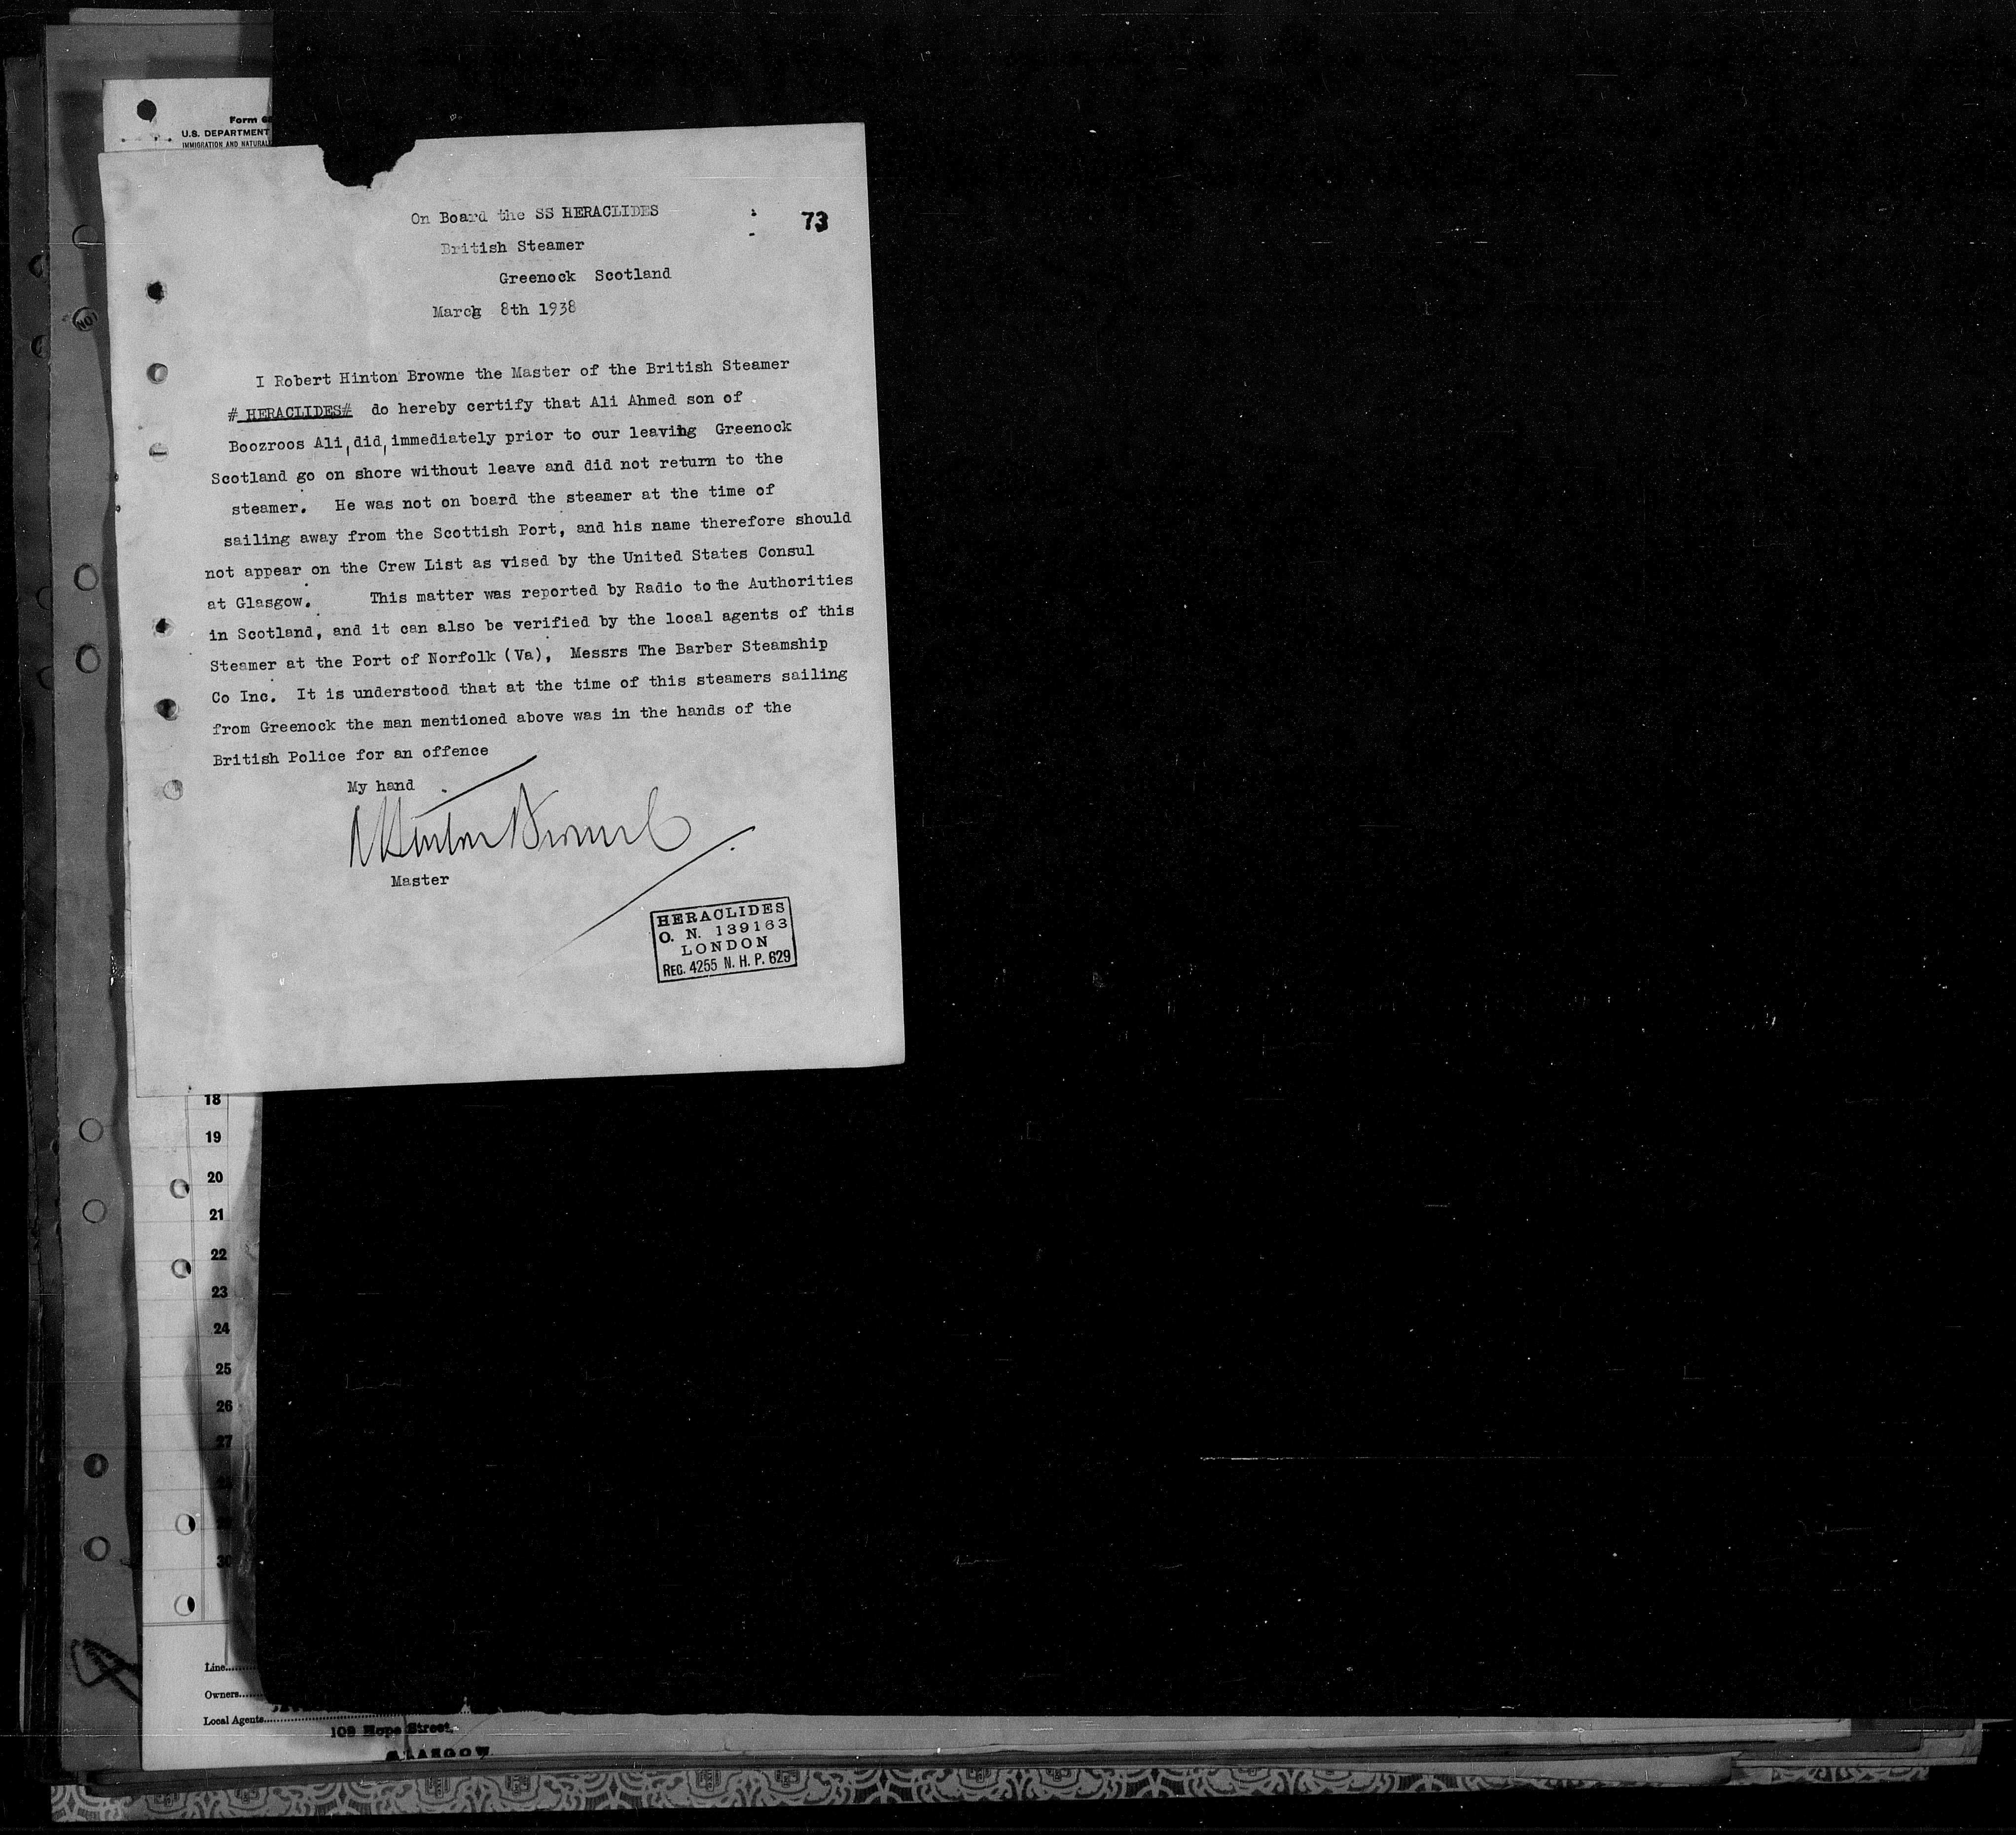 Form
U.S. DEPARTMENT
IMMIGRATION AND
73
On Board the SS HERACLIDES
British Steamer
Greenock Scotland
March 8th 1938
I Robert Hinton Browne the Master of the British Steamer
# HERACLIDES# do hereby certify that Ali Ahmed son of
Boozroos Ali, did, immediately prior to our leaving Greenock
Scotland go on shore without leave and did not return to the
steamer. He was not on board the steamer at the time of
sailing away from the Scottish Port, and his name therefore should
not appear on the Crew List as vised by the United States Consul
at Glasgow. This matter was reported by Radio to the Authorities
in Scotland, and it can also be verified by the local agents of this
Steamer at the Port of Norfolk (Va), Messrs The Barber Steamship
Co Inc. It is understood that at the time of this steamers sailing
from Greenock the man mentioned above was in the hands of the
British Police for an offence
My hand
R Hinton Browne
Master
HERACLIDES
O. N. 139163
LONDON
REG. 4255 N. H. P. 629
18
19
20
21
22
23
24
25
26
27
30
Line
Owners
Local Agents
109 Hope Street,
GLASGOW